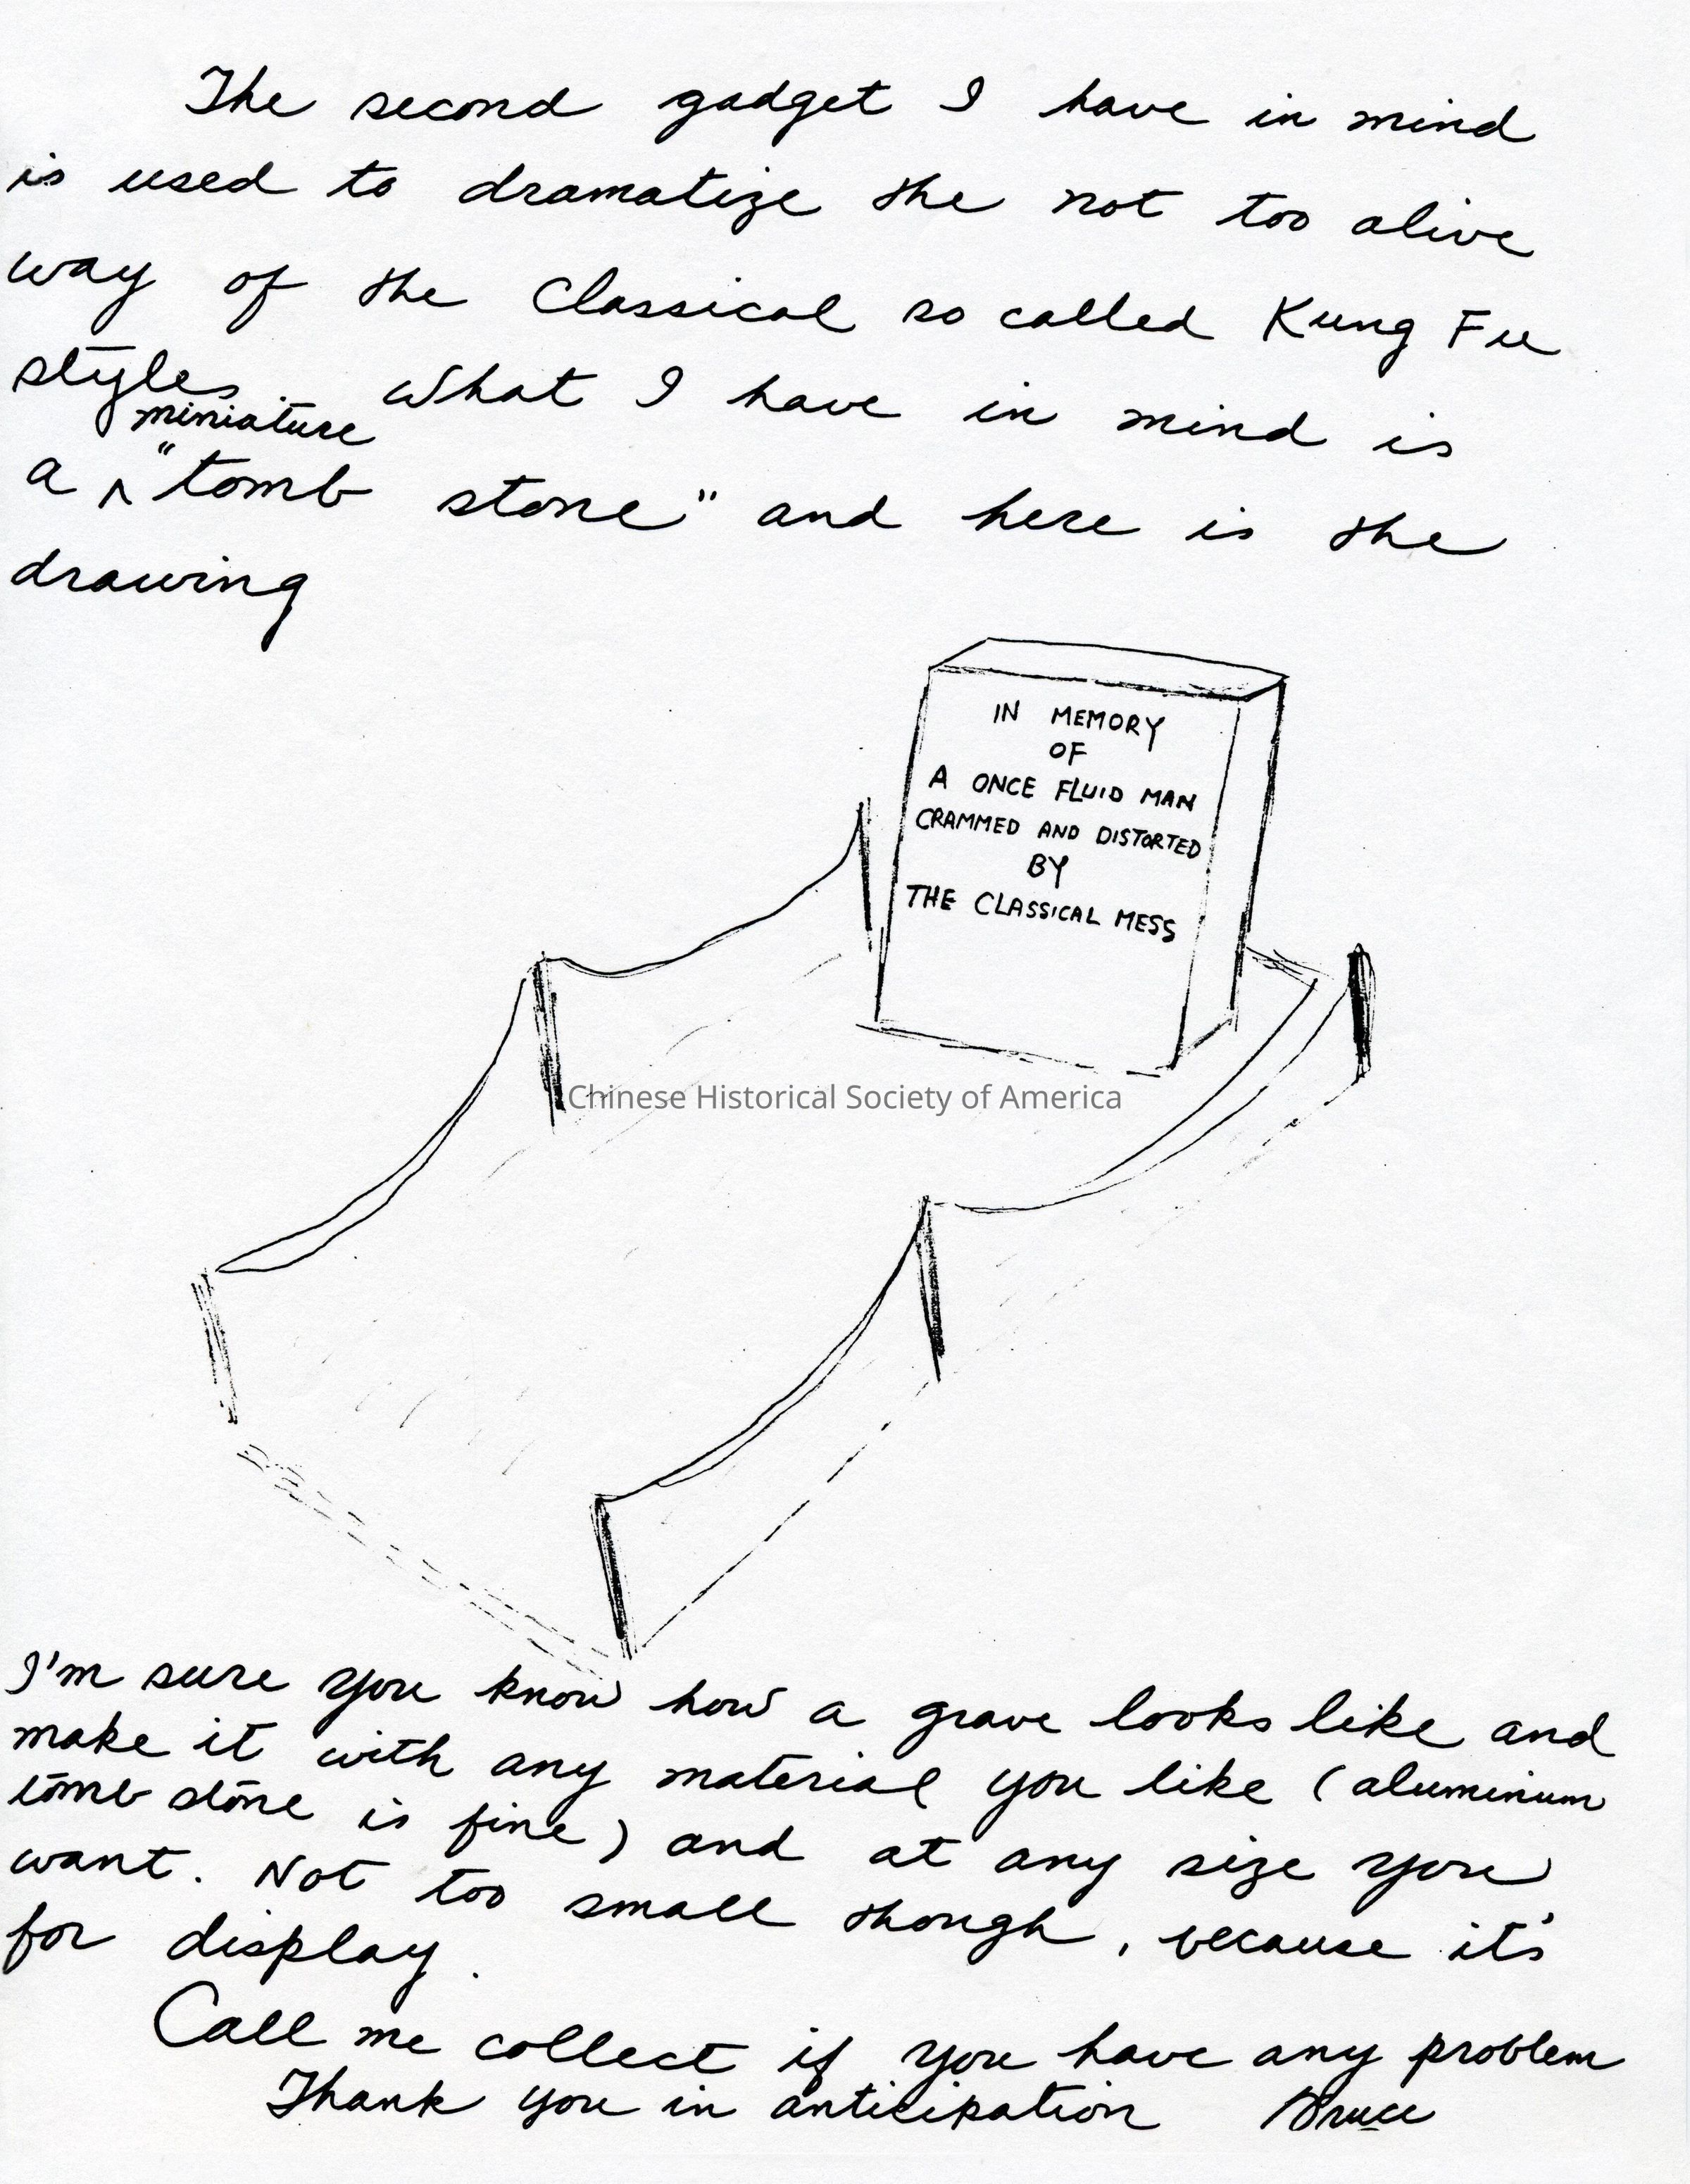 The second gadget I have in mind
is used to dramatize the not too alive
way of the Classical so called Kung Fu
styles. What I have in mind is
miniature
a ^ "tomb stone" and here is the
drawing
IN MEMORY
OF
A ONCE FLUID MAN
CRAMMED AND DISTORTED
BY
THE CLASSICAL MESS
Chinese Historical Society of America
I'm sure you know how a grave looks like and
make it with any material you like (aluminum
tomb stone is fine) and at any size you
want. Not too small though, because it's
for display.
Call me collect if you have any problem
Thank you in anticipation Bruce